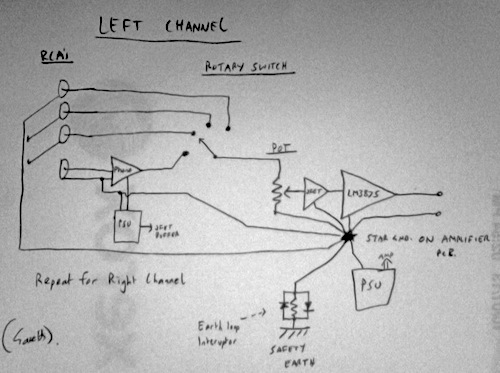 LEFT CHANNEL
RCA's
ROTARY SWITCH
POT
Phono
JFET
LM3875
PSU
JFET
BUFFER
STAR GND. ON AMPLIFIER
PCB.
AMP
PSU
Repeat for Right Channel
Earth loop
Interuptor
SAFETY
EARTH